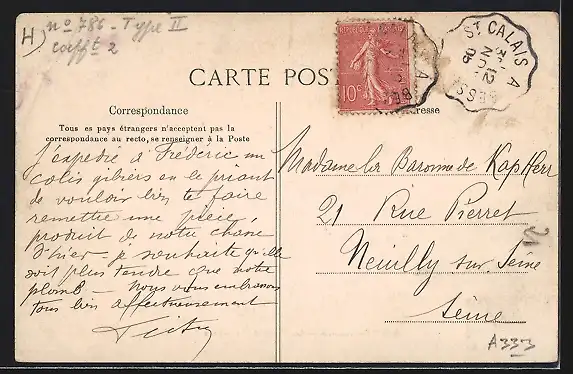 H) nº 786 - Type II
coeffᵗ 2
CARTE POS
10c
ST CALAIS A
BESSÉ
12
NOV
05
Correspondance
Tous es pays étrangers n'acceptent pas la
correspondance au recto, se renseigner à la Poste
J'expédie à Frédéric un
colis gibiers en le priant
de vouloir bien te faire
remettre une pièce,
produit de notre chasse
d'hier - je souhaite qu'elle
soit plus tendre que notre
plomb - nous vous embrassons
tous bien affectueusement
resse
Madame la Baronne de Kap Herr
21 Rue Pierret
Neuilly sur Seine
Seine
21
A333